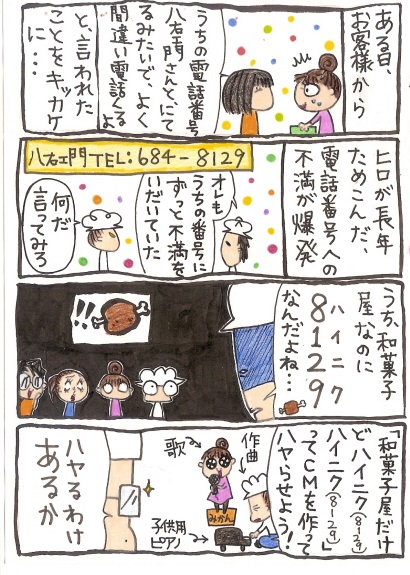 ある日、
お客様から
うちの電話番号
八右エ門さんと、にて
るみたいで、よく
間違い電話くるよ
と、言われた
ことをキッカケ
に・・・
ヒロが長年
ためこんだ、
電話番号への
不満が爆発
八右エ門TEL:684-8129
オレも
うちの番号に
ずっと不満を
いだいていた
何だ
言ってみろ
うち、和菓子
屋なのに
8129
ハイニク
なんだよね・・・
!!
和菓子屋だけ
どハイニク(8129)
ハイニク(8129)」
ってCMを作って
ハヤらせよう!
作曲
歌
みかん
子供用
ピアノ
ハヤるわけ
あるか